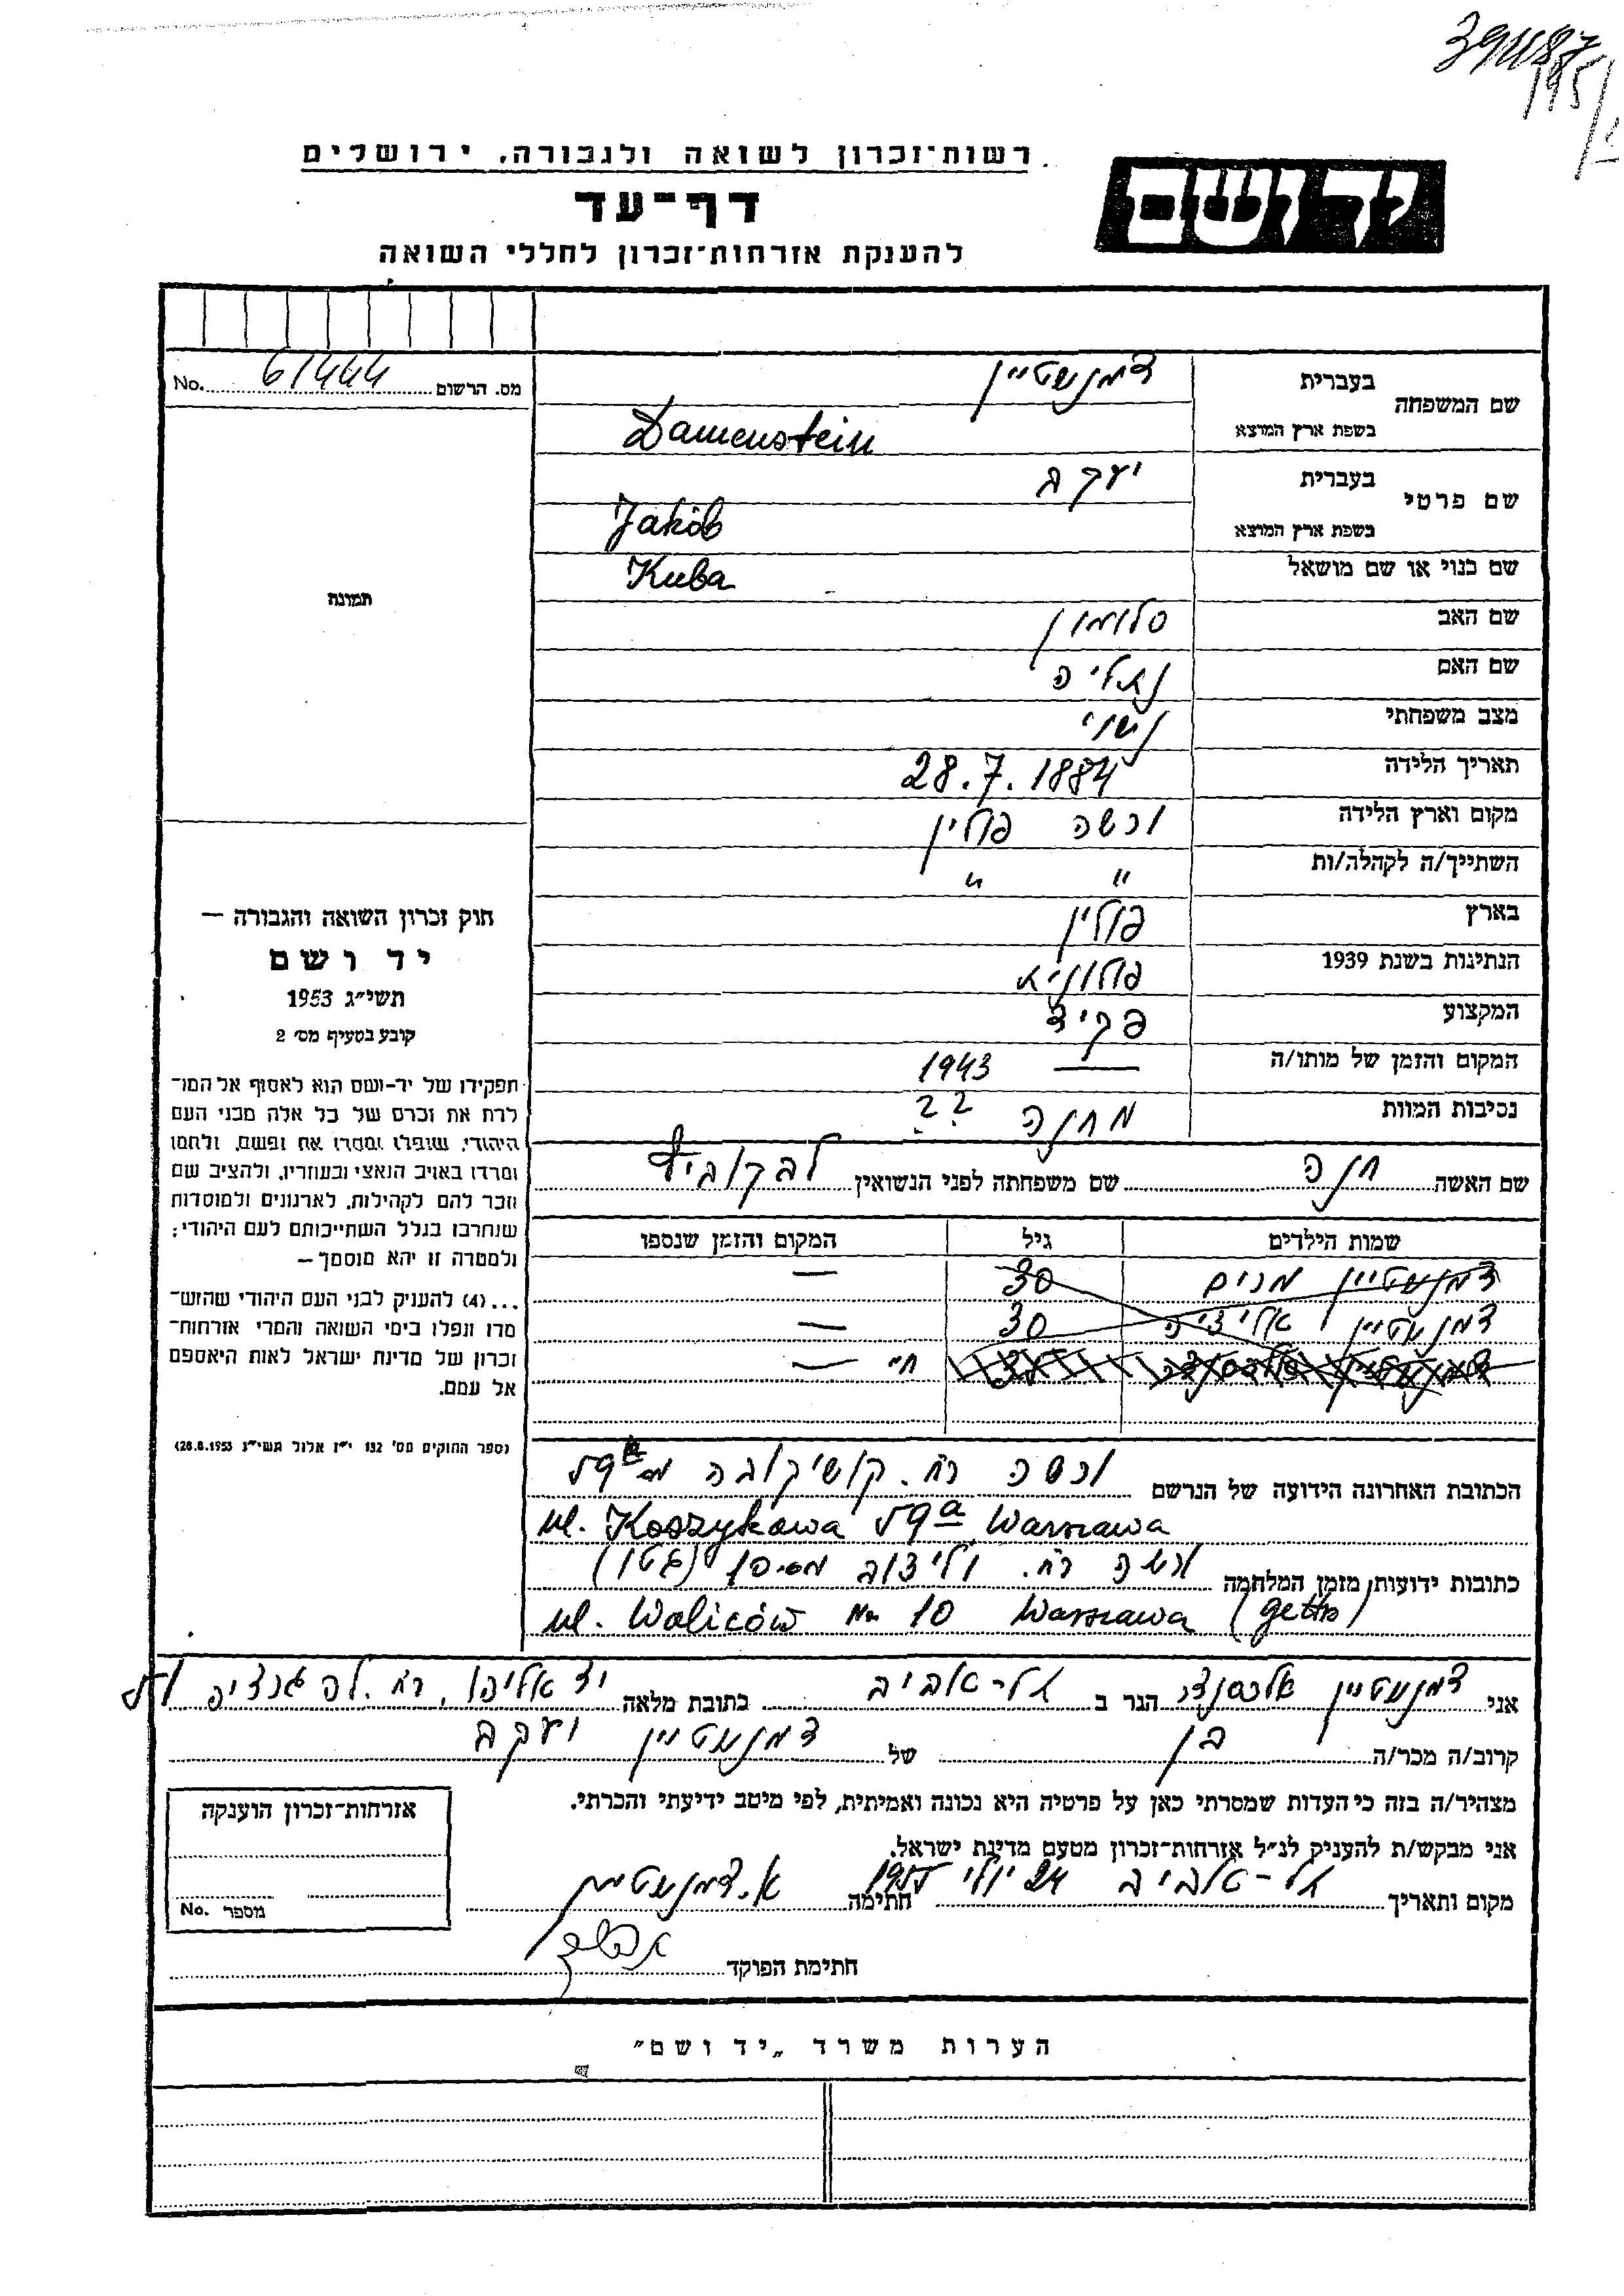 רשות־זכרון לשואה ולגבורה, ירושלים
יד ושם
דף־עד
להענקת אזרחות־זכרון לחללי השואה
No. 61444 מס. הרשום
שם המשפחה בעברית דמנשטיין
בשפת ארץ המוצא Damenstein
שם פרטי בעברית יעקב
בשפת ארץ המוצא Jakób
שם כנוי או שם מושאל Kuba
שם האב סלומון
שם האם נטליה
מצב משפחתי נשוי
תאריך הלידה 28.7.1884
מקום וארץ הלידה ורשה פולין
השתייך/ה לקהלה/ות " "
בארץ פולין
הנתינות בשנת 1939 פולונית
המקצוע פקיד
המקום והזמן של מותו/ה — 1943
נסיבות המוות מחנה ??
תמונה
חוק זכרון השואה והגבורה —
יד ושם
תשי״ג 1953
קובע בסעיף מס׳ 2
תפקידו של יד־ושם הוא לאסוף אל המו־
לדת את זכרם של כל אלה מבני העם
היהודי, שנפלו ומסרו את נפשם, נלחמו
ומרדו באויב הנאצי ובעוזריו, ולהציב שם
וזכר להם לקהילות, לארגונים ולמוסדות
שנחרבו בגלל השתייכותם לעם היהודי;
ולמטרה זו יהא מוסמך —
...(4) להעניק לבני העם היהודי שהוש־
מדו ונפלו בימי השואה והמרי אזרחות־
זכרון של מדינת ישראל לאות היאספם
אל עמם.
(ספר החוקים מס׳ 132 י״ז אלול תשי״ג 28.8.1953)
שם האשה חנה שם משפחתה לפני הנשואין לבקוביץ
שמות הילדים גיל המקום והזמן שנספו
דמנשטיין מנים 30 —
דמנשטיין אליציה 30 —
חי —
הכתובת האחרונה הידועה של הנרשם ורשה רח. קושיקובה מס 59a
ul. Koszykowa 59a Warszawa
כתובות ידועות מזמן המלחמה ורשה רח. וליצוב מס 10 (גטו)
ul. Waliców No 10 Warszawa (getto)
אני דמנשטיין אלכסנדר הגר ב תל־אביב כתובת מלאה יד אליהו, רח. לה גרדיה
קרוב/ה מכר/ה בן של דמנשטיין יעקב
מצהיר/ה בזה כי העדות שמסרתי כאן על פרטיה היא נכונה ואמיתית, לפי מיטב ידיעתי והכרתי.
אני מבקש/ת להעניק לנ״ל אזרחות־זכרון מטעם מדינת ישראל.
מקום ותאריך תל־אביב 24 יולי 1955 חתימה א. דמנשטיין
חתימת הפוקד
אזרחות־זכרון הוענקה
מספר No.
הערות משרד „יד ושם״